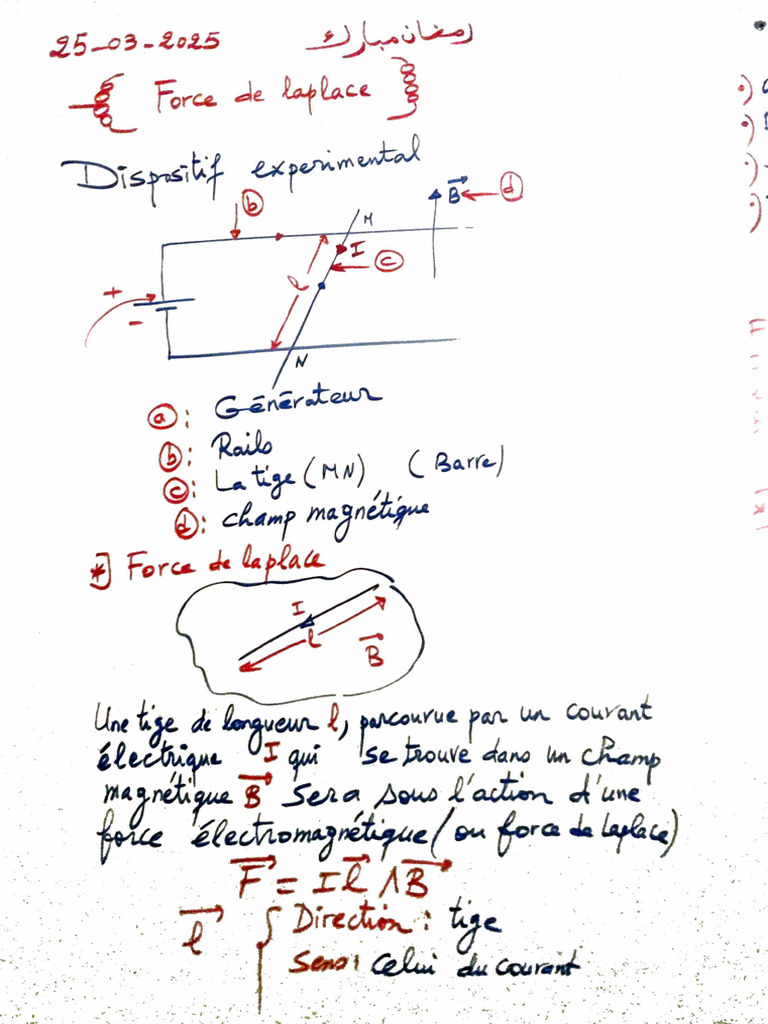 25-03-2025 رمضان مبارك
Force de laplace
Dispositif experimental
b
B d
M
I
c
l
+
-
N
a: Générateur
b: Rails
c: La tige (MN) (Barre)
d: champ magnétique
*] Force de laplace
I
l
B
Une tige de longueur l, parcourue par un courant
électrique I qui se trouve dans un champ
magnétique B sera sous l'action d'une
force électromagnétique (ou force de laplace)
F = I l ∧ B
l { Direction : tige
Sens : celui du courant